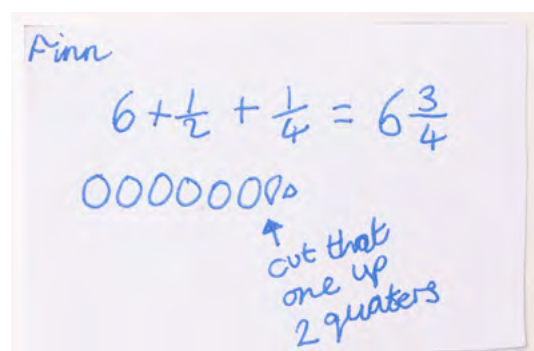 Finn
6 + 1/2 + 1/4 = 6 3/4
cut that
one up
2 quaters